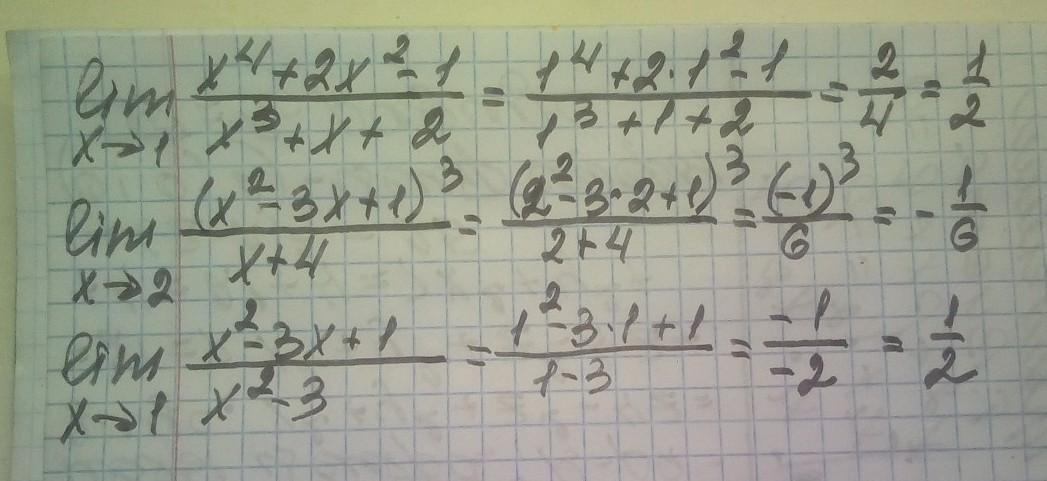 lim x→1 (x⁴+2x²-1)/(x³+x+2) = (1⁴+2·1²-1)/(1³+1+2) = 2/4 = 1/2
lim x→2 (x²-3x+1)³/(x+4) = (2²-3·2+1)³/(2+4) = (-1)³/6 = -1/6
lim x→1 (x²-3x+1)/(x²-3) = (1²-3·1+1)/(1-3) = -1/-2 = 1/2